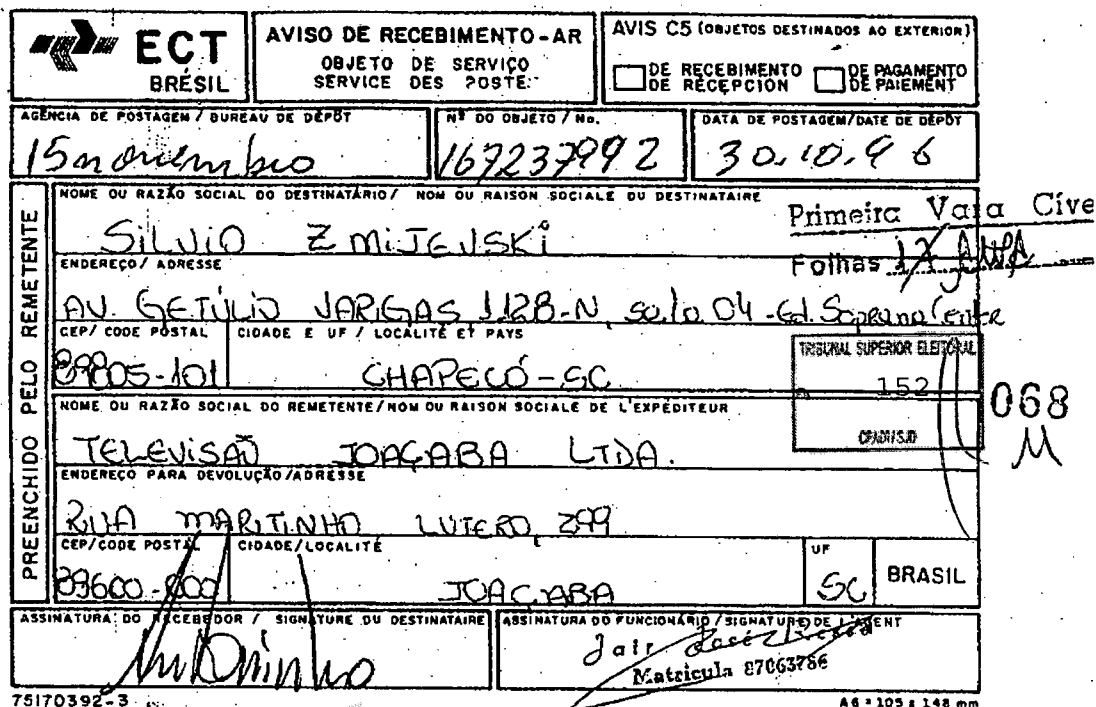 ECT
BRÉSIL
AVISO DE RECEBIMENTO-AR
OBJETO DE SERVIÇO
SERVICE DES POSTE
AVIS C5 (OBJETOS DESTINADOS AO EXTERIOR)
DE RECEBIMENTO
DE RÉCEPCION
DE PAGAMENTO
DE PAIEMENT
AGÊNCIA DE POSTAGEM / BUREAU DE DÉPÔT
15 novembro
Nº DO OBJETO / No.
167237992
DATA DE POSTAGEM/DATE DE DÉPÔT
30.10.96
PREENCHIDO PELO REMETENTE
NOME OU RAZÃO SOCIAL DO DESTINATÁRIO / NOM OU RAISON SOCIALE DU DESTINATAIRE
SILVIO ZMIJEJSKI
Primeira Vara Cíve
Folhas 17
ENDEREÇO / ADRESSE
AV. GETÚLIO VARGAS 1.128-N, sala 04 - Ed. Soprana Center
CEP/ CODE POSTAL
89805-101
CIDADE E UF / LOCALITÉ ET PAYS
CHAPECÓ-SC
TRIBUNAL SUPERIOR ELEITORAL
152
CPADI/SJD
068
M
NOME OU RAZÃO SOCIAL DO REMETENTE/NOM OU RAISON SOCIALE DE L'EXPÉDITEUR
TELEVISAÕ JOAÇABA LTDA.
ENDEREÇO PARA DEVOLUÇÃO/ADRESSE
RUA MARTINHO LUTERO, 299
CEP/CODE POSTAL
89600-000
CIDADE/LOCALITÉ
JOAÇABA
UF
SC
BRASIL
ASSINATURA DO RECEBEDOR / SIGNATURE DU DESTINATAIRE
ASSINATURA DO FUNCIONÁRIO / SIGNATURE DE L'AGENT
Jair José
Matrícula 87063786
75170392-3
A6 = 105 x 148 mm